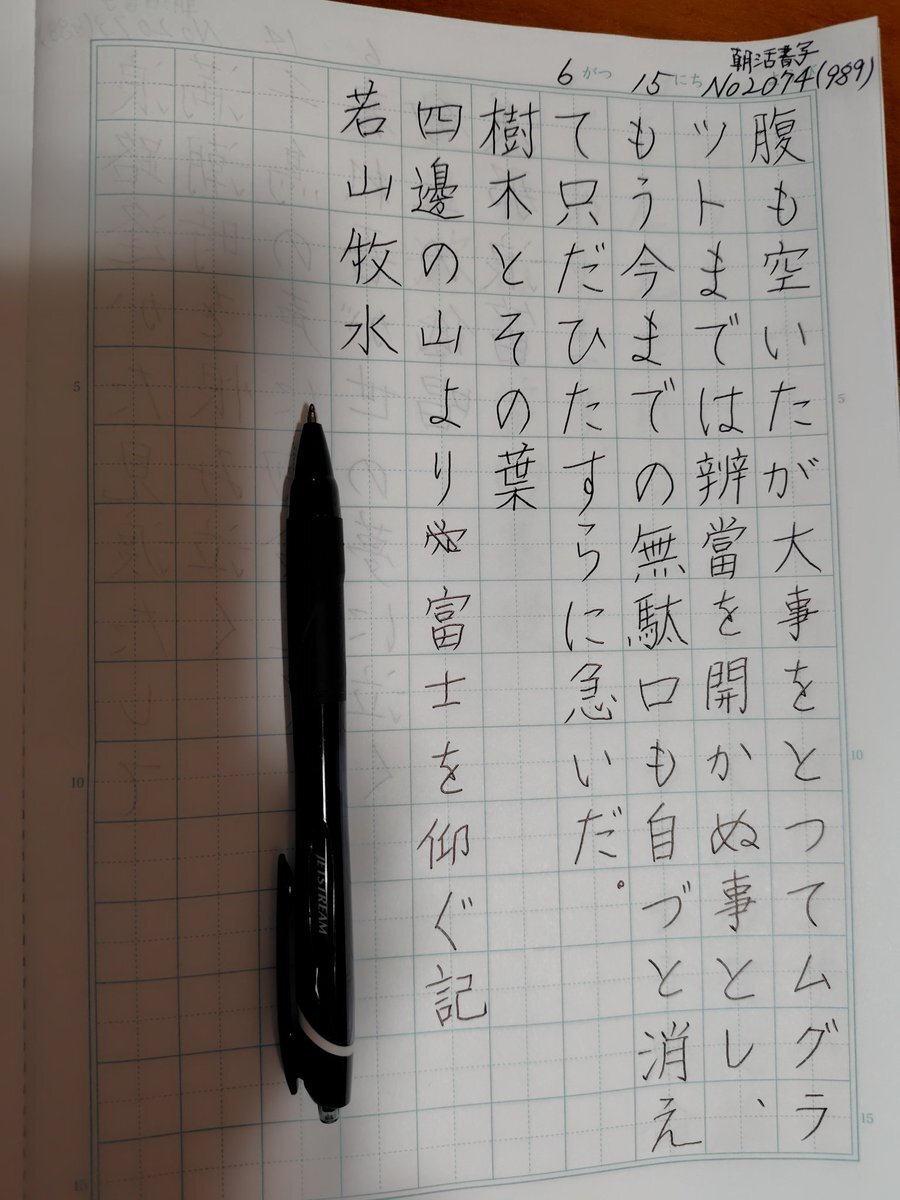 朝活書写
No2074(989)
6がつ 15にち
腹も空いたが大事をとつてムグラ
ツトまでは辨當を開かぬ事とし、
もう今までの無駄口も自づと消え
て只だひたすらに急いだ。
樹木とその葉
四邊の山より富士を仰ぐ記
若山牧水
5
10
15
5
10
15
JETSTREAM